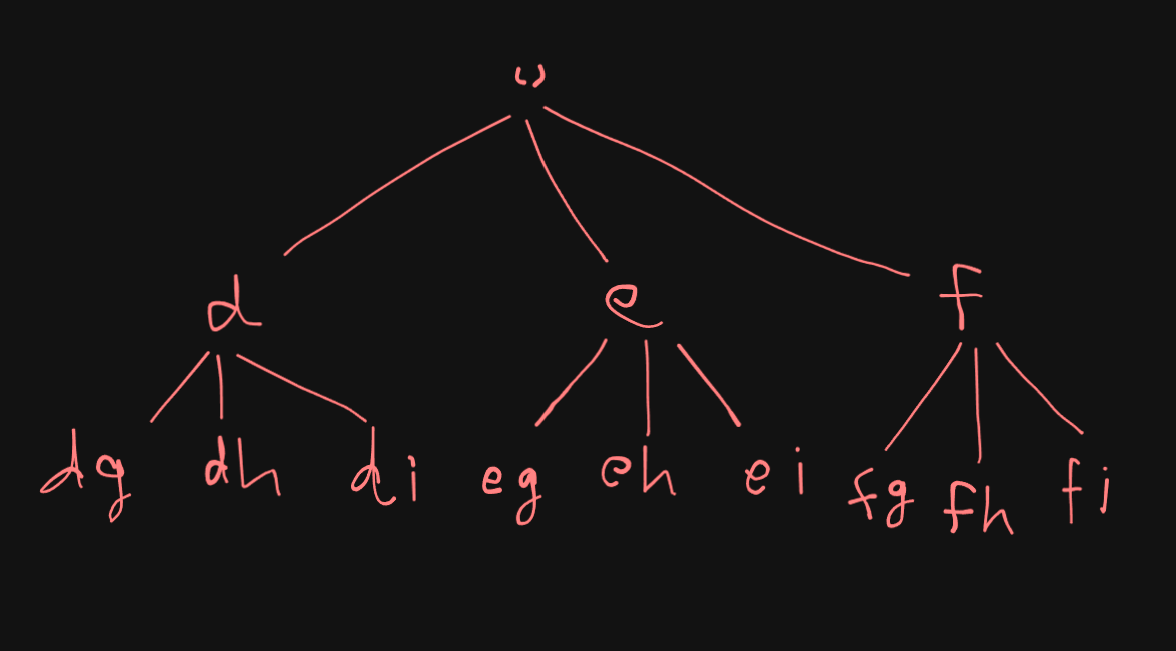 ""
d e f
dg dh di eg eh ei fg fh fi